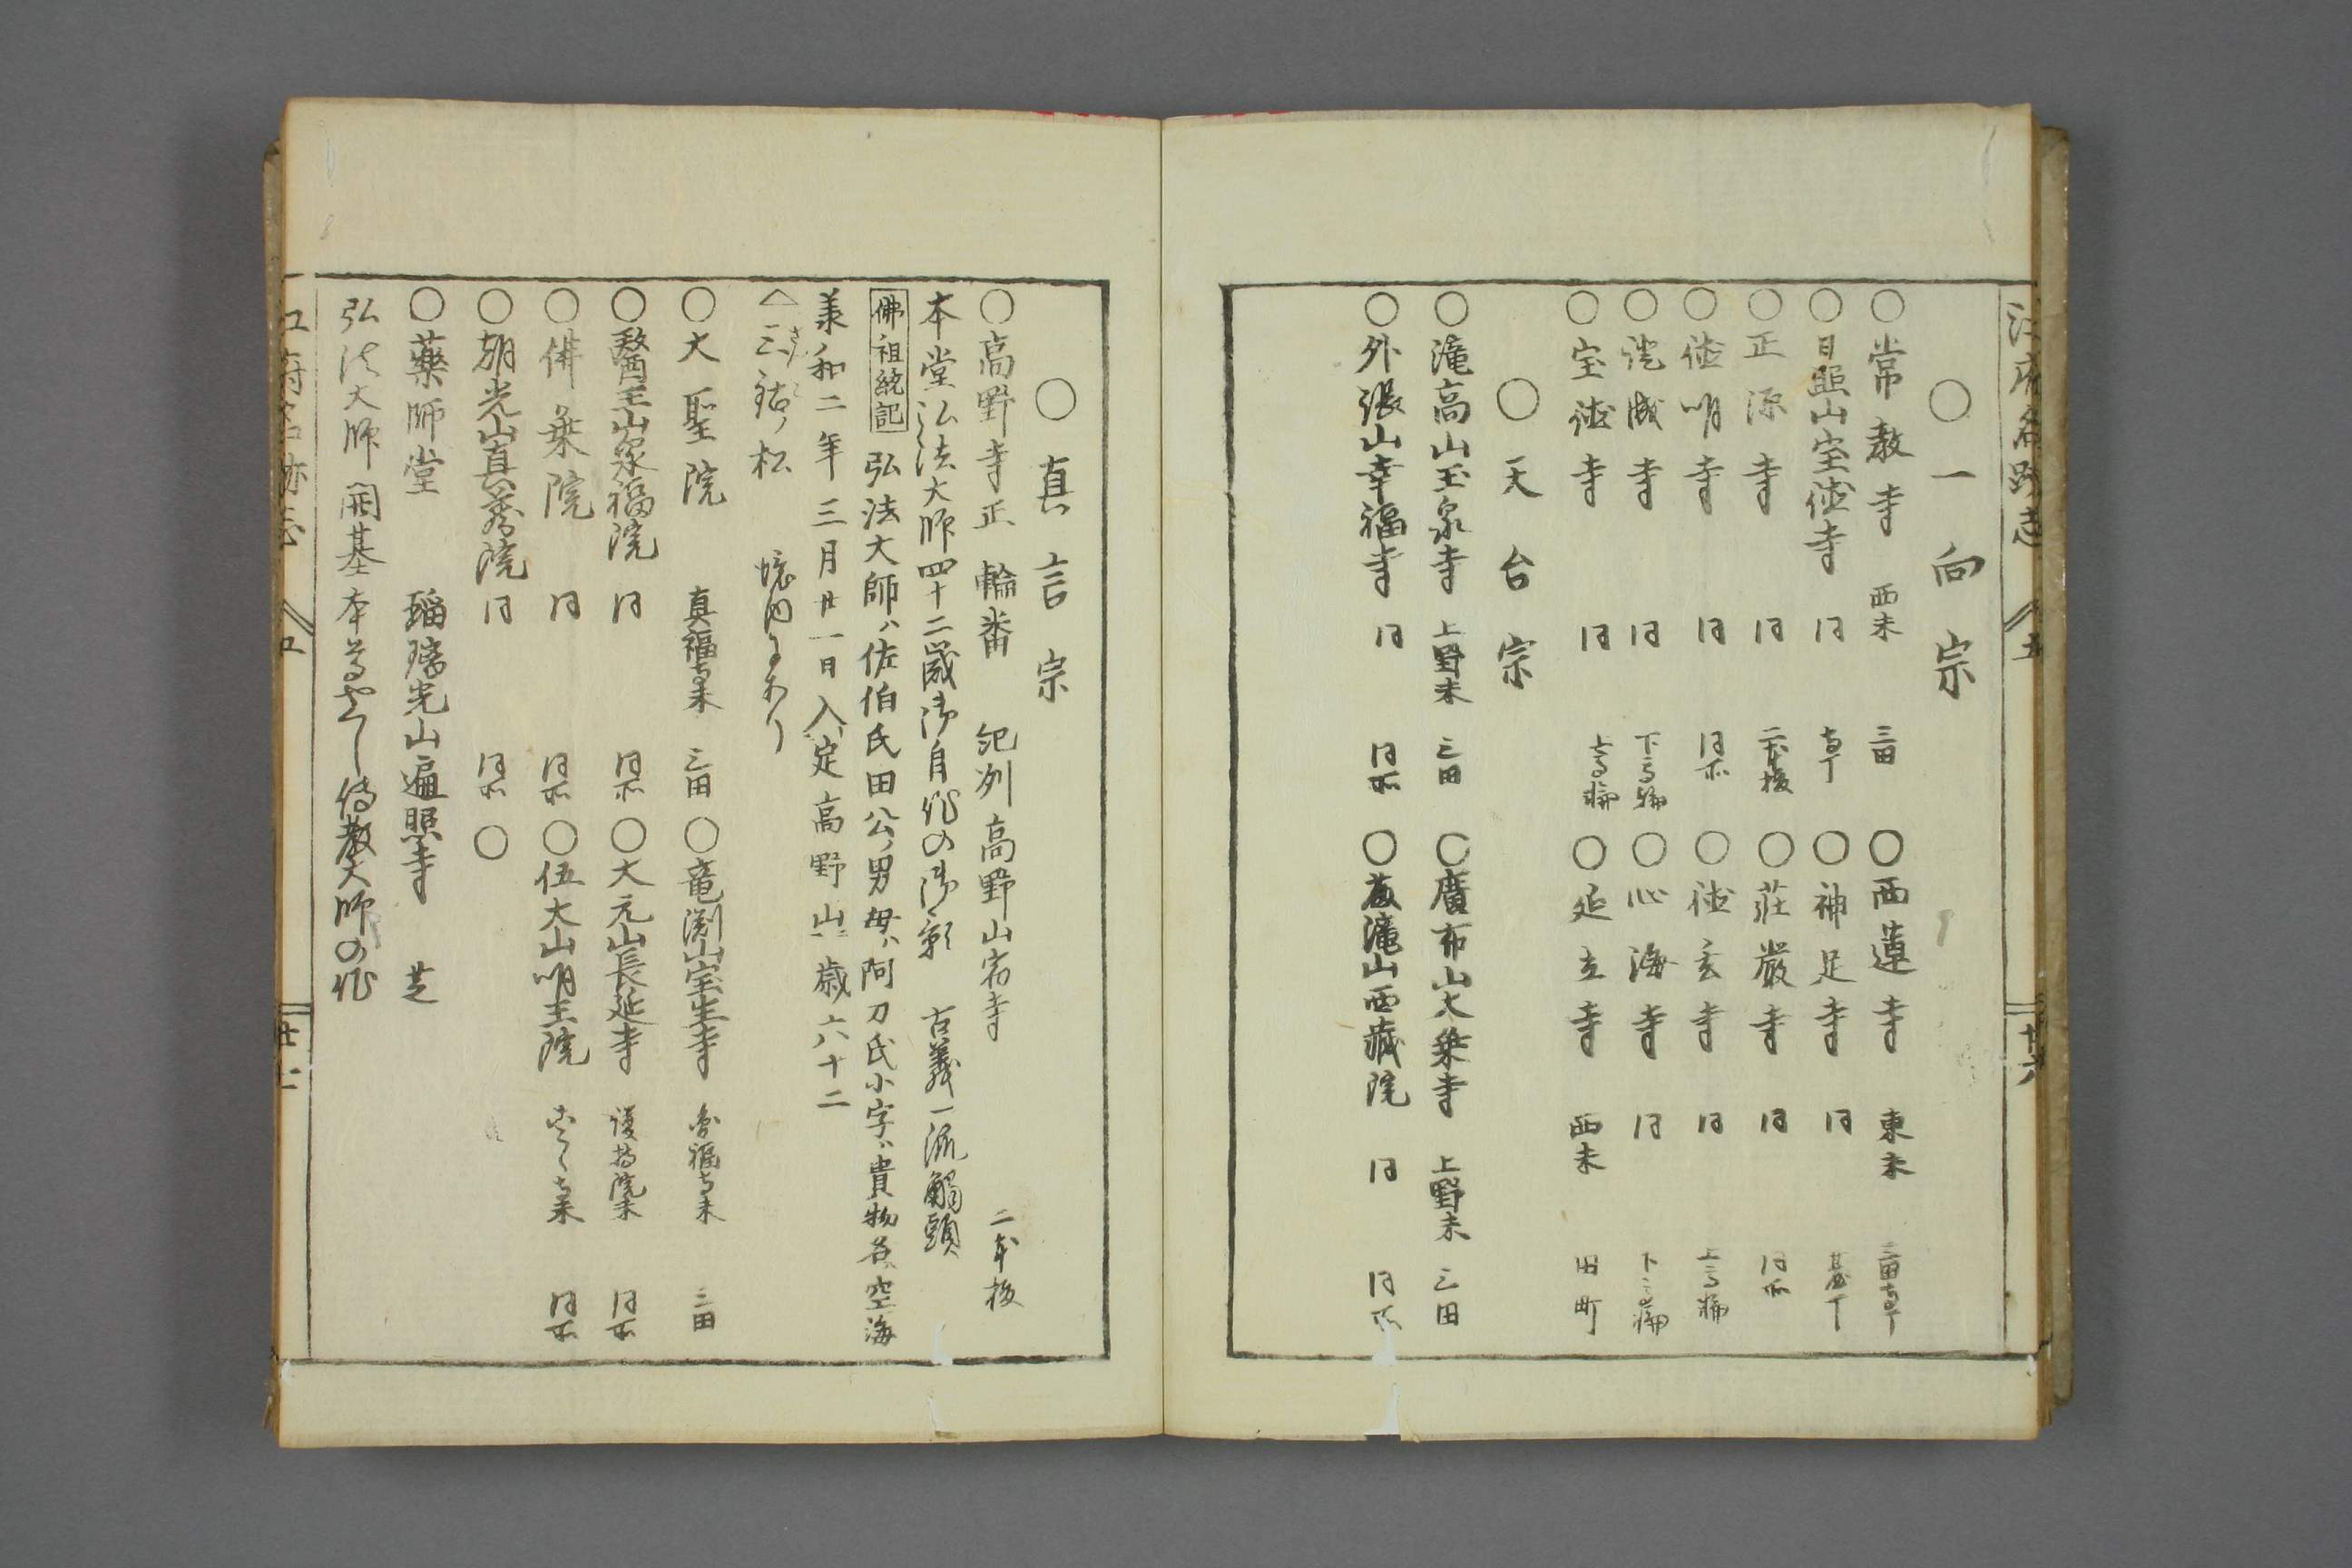 江府名跡志 五 廿六
○一向宗
○常教寺 西末 三田 ○西蓮寺 東末 三田寺丁
○日照山宝徳寺 同 寺丁 ○神足寺 同
○正源寺 同 二本榎 ○荘厳寺 同 同所
○徳明寺 同 同所 ○徳玄寺 同 上高輪
○寺 同 下高輪 ○心海寺 同 下高輪
○宝徳寺 同 上高輪 ○延立寺 西末 田町
○天台宗
○滝高山玉泉寺 上野末 三田 ○廣布山大乗寺 上野末 三田
○外張山幸福寺 同 同所 ○滝山西蔵院 同 同所
○真言宗
○高野寺 正輪番 紀州高野山宿寺 二本榎
本堂弘法大師四十二歳御自作の御影 古義一派觸頭
佛祖統記 弘法大師ハ佐伯氏田公ノ男母ハ阿刀氏小字ハ貴物名ハ空海
承和二年三月廿一日入定高野山ニ歳六十二
三鈷ノ松 境内にあり
○大聖院 真福寺末 三田 ○竜渕山宝生寺 真福寺末 三田
○醫王山泉福院 同 同所 ○大元山長延寺 護持院末 同所
○佛乗院 同 同所 ○伍大山明王院 同所
○朝光山真秀院 同 同所 ○
○藥師堂 瑠璃光山遍照寺 芝
弘法大師開基本尊やくし傳教大師の作
江府名跡志 五 廿七